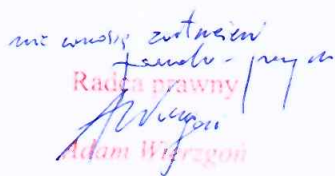 nie wnoszę zastrzeżeń
formalno-prawnych
Radca prawny
Adam Wierzgoń